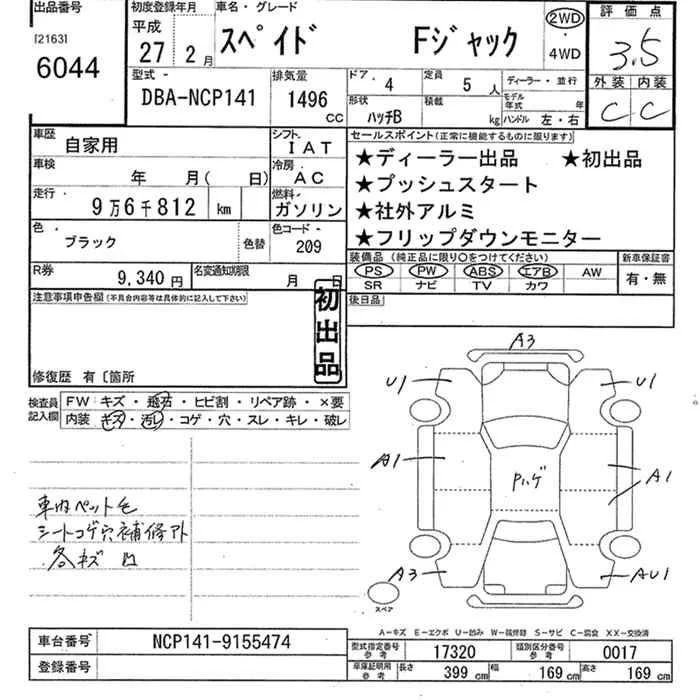 出品番号
[2163]
6044
初度登録年月
平成
27 2月
車名・グレード
スペイド Fジャック
2WD
・
4WD
評価点
3.5
外装 内装
C C
型式
DBA-NCP141
排気量
1496
CC
ドア 4
定員 5人
ディーラー・並行
形状 ハッチB
積載 kg
モデル年式 年
ハンドル 左・右
車歴 自家用
シフト IAT
車検 年 月( 日)
冷房 AC
走行 9万6千812 km
燃料 ガソリン
色 ブラック
色替
色コード 209
R券 9,340円
名変通知期限 月 日
セールスポイント(正常に機能するものに限ります)
★ディーラー出品 ★初出品
★プッシュスタート
★社外アルミ
★フリップダウンモニター
装備品 (純正品に限り○をつけてください)
PS PW ABS エアB AW
SR ナビ TV カワ
新車保証書
有・無
後日品
注意事項申告欄(不具合内容等は具体的に記入して下さい)
初出品
修復歴 有〔箇所
検査員記入欄
FW キズ・飛石・ヒビ割・リペア跡・×要
内装 キズ・汚レ・コゲ・穴・スレ・キレ・破レ
車内ペット毛
シートコゲ穴補修アト
各キズ
A3
U1 U1
A1
A1
A3
AU1
スペア
A-キズ E-エクボ U-凹み W-補修跡 S-サビ C-腐食 XX-交換済
車台番号 NCP141-9155474
登録番号
型式指定番号 参考 17320
類別区分番号 参考 0017
車庫証明用 参考
長さ 399 cm
幅 169 cm
高さ 169 cm